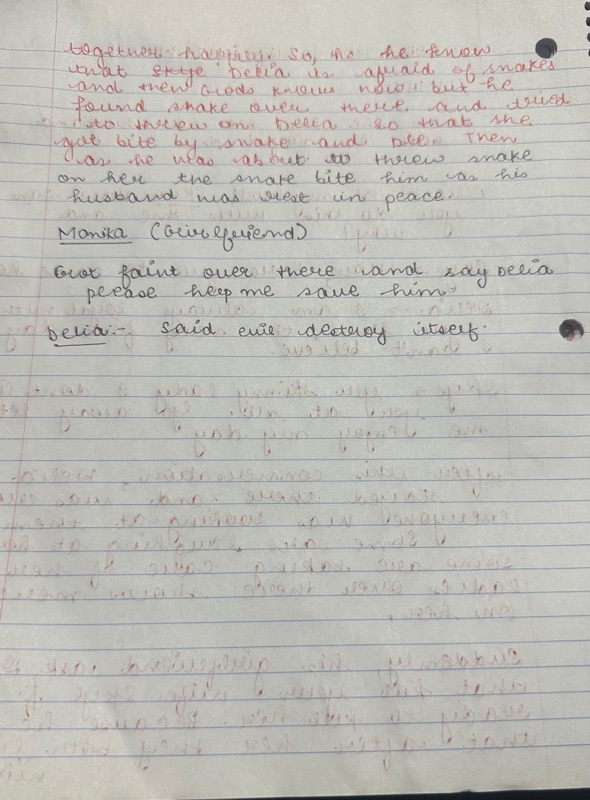 together happier. So, ho he know
that skye Delia is afraid of snakes
and then Gods knows how but he
found snake over there and tried
to threw on Delia so that she
got bite by snake and Die. Then
as he was about to threw snake
on her the snake bite him as his
husband was rest in peace.
Monika (Girlfriend)
Got faint over there and say Delia
please help me save him
Delia:- said evil destroy itself.